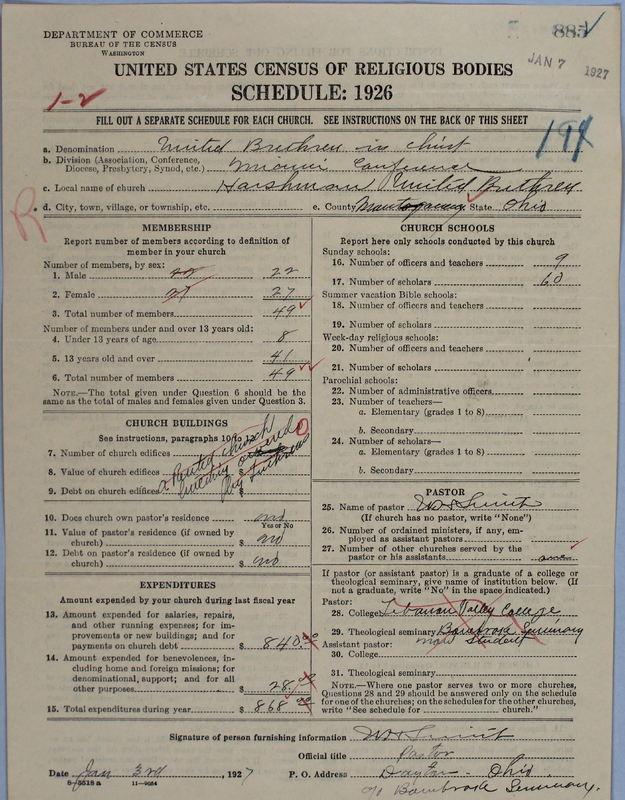 DEPARTMENT OF COMMERCE
BUREAU OF THE CENSUS
WASHINGTON
885
JAN 7 1927
UNITED STATES CENSUS OF RELIGIOUS BODIES
1-2
SCHEDULE: 1926
FILL OUT A SEPARATE SCHEDULE FOR EACH CHURCH. SEE INSTRUCTIONS ON THE BACK OF THIS SHEET
a. Denomination United Brethren in Christ
b. Division (Association, Conference, Diocese, Presbytery, Synod, etc.) Miami Conference
c. Local name of church Harshman United Brethren
R
d. City, town, village, or township, etc. e. County Montgomery State Ohio
MEMBERSHIP
Report number of members according to definition of
member in your church
Number of members, by sex:
1. Male 22 22
2. Female 27 27
3. Total number of members 49
Number of members under and over 13 years old:
4. Under 13 years of age 8
5. 13 years old and over 41
6. Total number of members 49
NOTE.—The total given under Question 6 should be
same as the total of males and females given under Question 3.
CHURCH BUILDINGS
See instructions, paragraphs 10 to 12
7. Number of church edifices 0
8. Value of church edifices $
9. Debt on church edifices $
a church
building owned
by
10. Does church own pastor's residence no
Yes or No
11. Value of pastor's residence (if owned by
church) $ no
12. Debt on pastor's residence (if owned by
church) $ no
EXPENDITURES
Amount expended by your church during last fiscal year
13. Amount expended for salaries, repairs,
and other running expenses; for im-
provements or new buildings; and for
payments on church debt $ 840.00
14. Amount expended for benevolences, in-
cluding home and foreign missions; for
denominational support; and for all
other purposes $ 28.00
15. Total expenditures during year $ 868.00
CHURCH SCHOOLS
Report here only schools conducted by this church
Sunday schools:
16. Number of officers and teachers 9
17. Number of scholars 60
Summer vacation Bible schools:
18. Number of officers and teachers
19. Number of scholars
Week-day religious schools:
20. Number of officers and teachers
21. Number of scholars
Parochial schools:
22. Number of administrative officers
23. Number of teachers—
a. Elementary (grades 1 to 8)
b. Secondary
24. Number of scholars—
a. Elementary (grades 1 to 8)
b. Secondary
PASTOR
25. Name of pastor Smith
(If church has no pastor, write "None")
26. Number of ordained ministers, if any, em-
ployed as assistant pastors
27. Number of other churches served by the
pastor or his assistants one
If pastor (or assistant pastor) is a graduate of a college or
theological seminary, give name of institution below. (If
not a graduate, write "No" in the space indicated.)
Pastor:
28. College Lebanon Valley College
29. Theological seminary Bonebrake Seminary
Assistant pastor: now student
30. College
31. Theological seminary
NOTE.—Where one pastor serves two or more churches,
Questions 28 and 29 should be answered only on the schedule
for one of the churches; on the schedules for the other churches,
write "See schedule for church."
Signature of person furnishing information Smith
Official title Pastor
Date Jan 3rd, 1927 P. O. Address Dayton - Ohio
8-5518 a 11-9084
c/o Bonebrake Seminary.